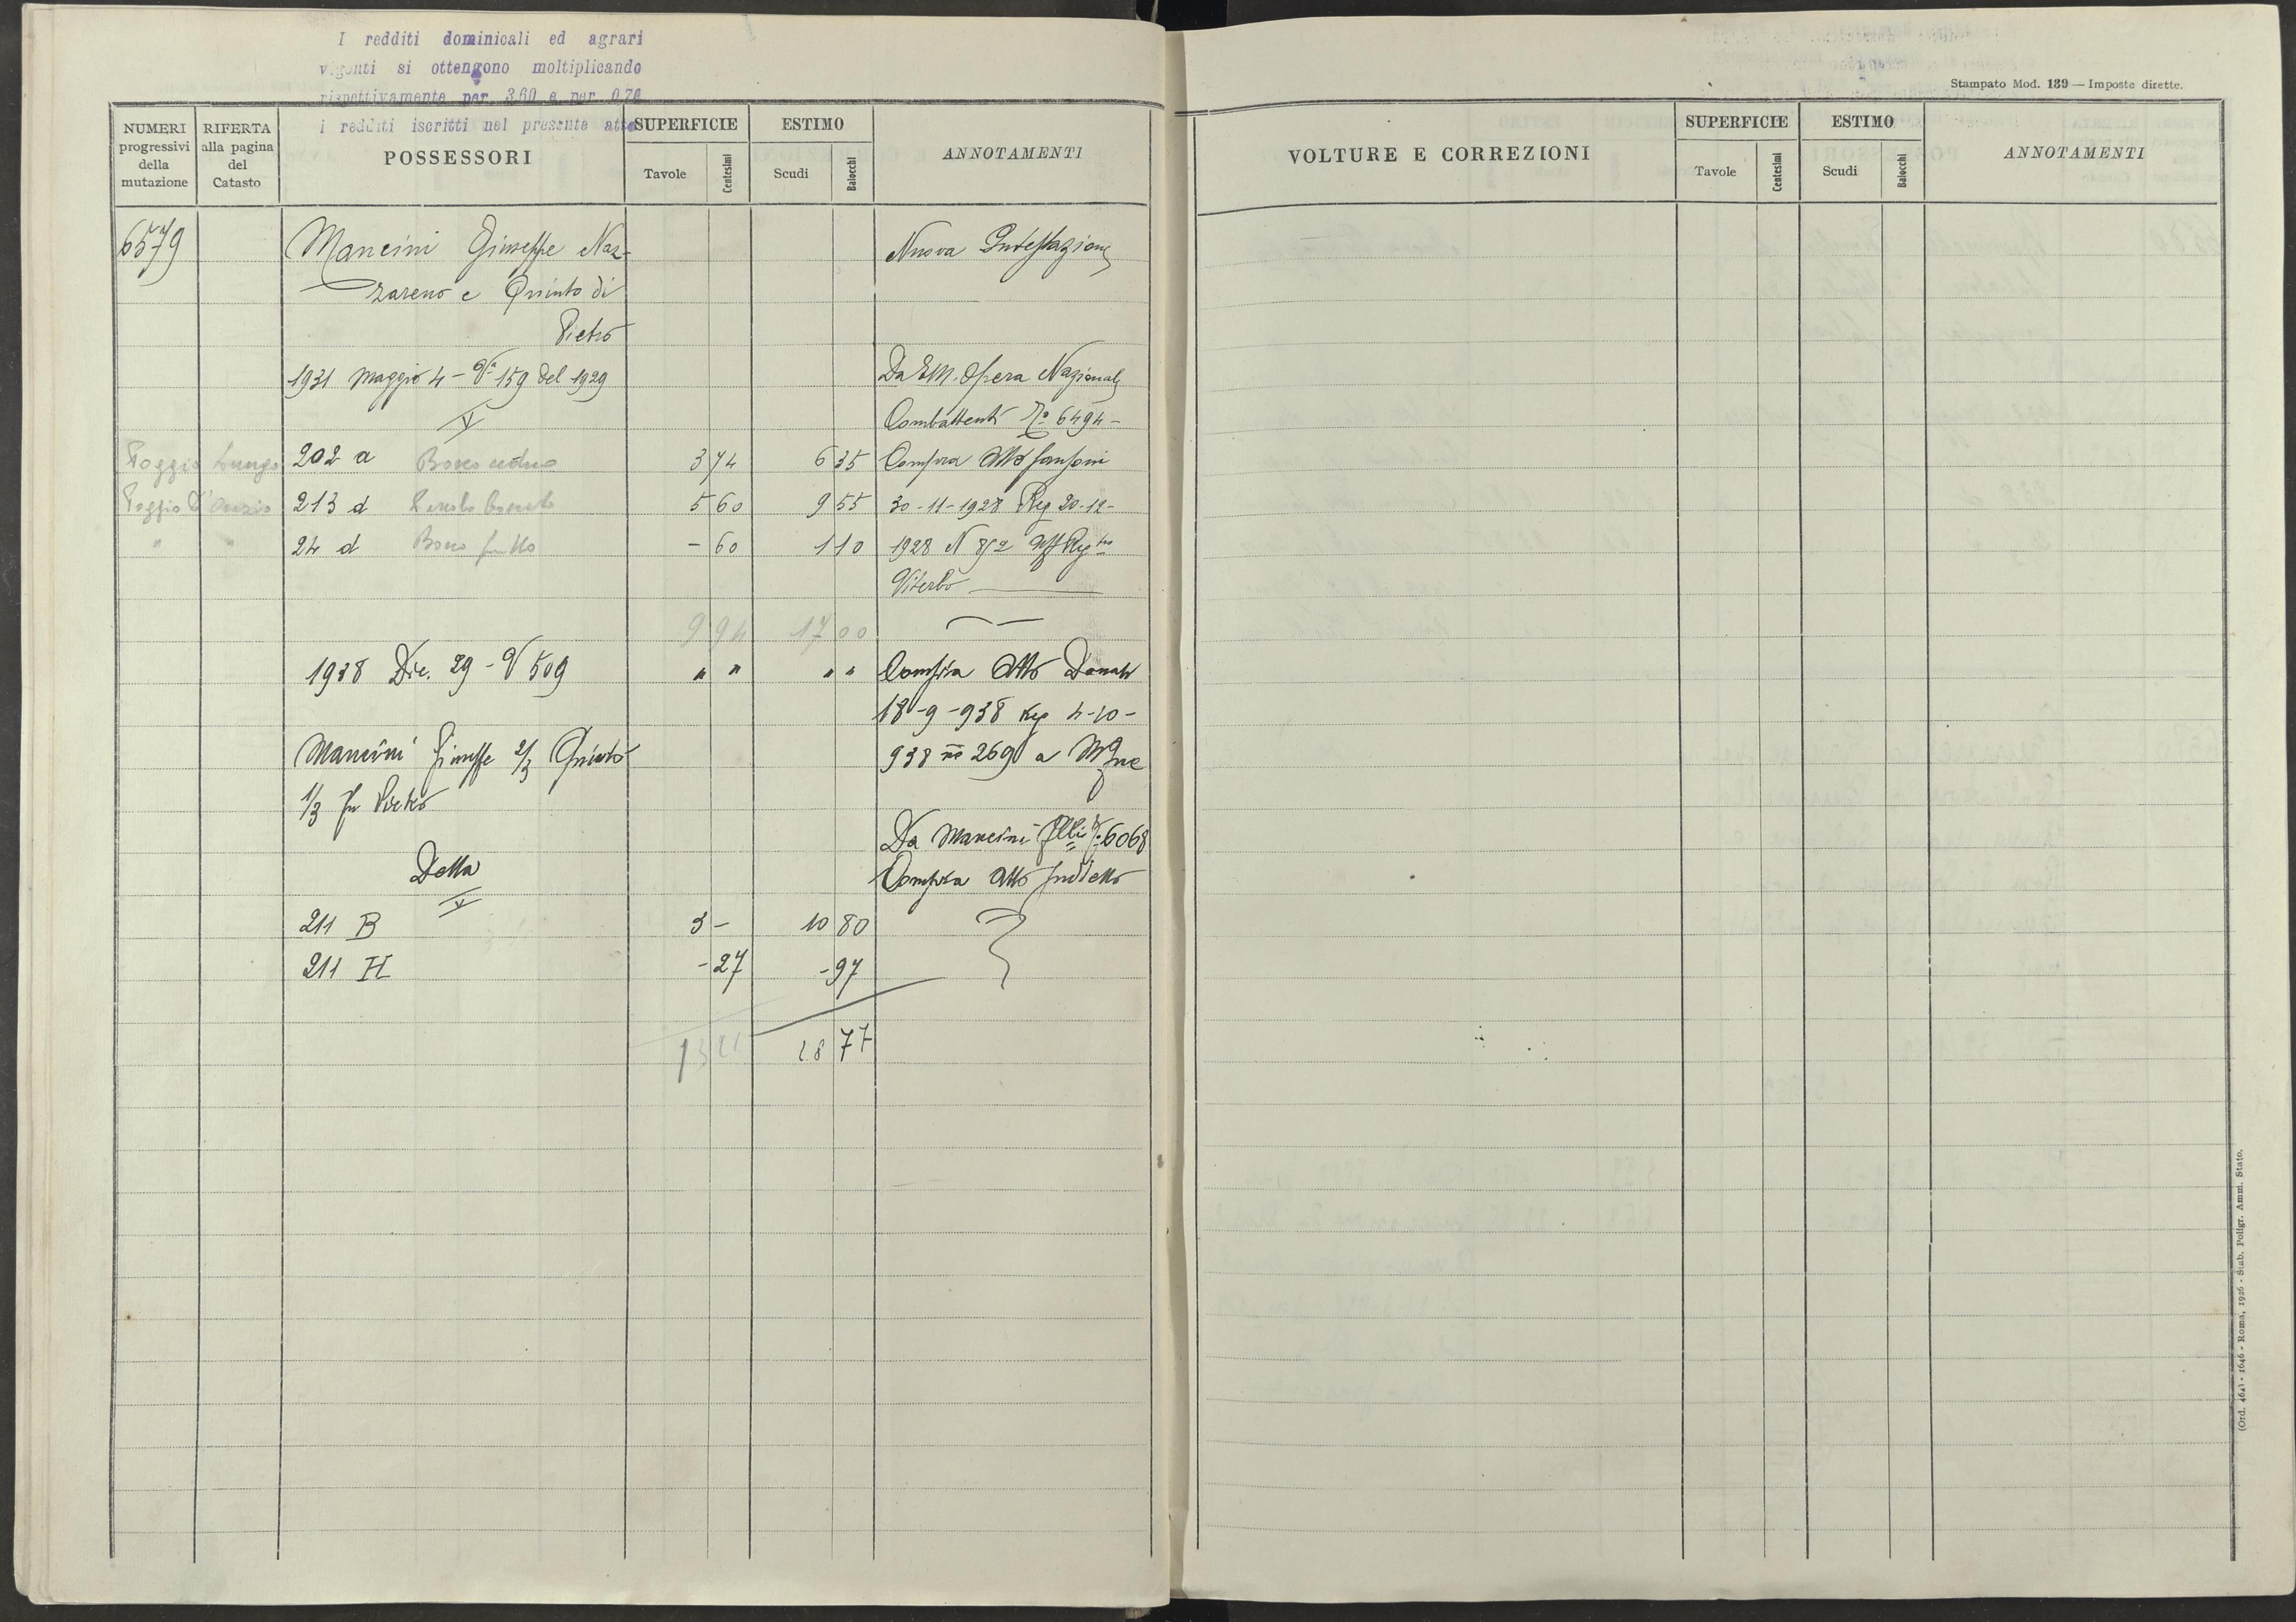 I redditi dominicali ed agrari
vigenti si ottengono moltiplicando
rispettivamente per 3,60 e per 0,70
i redditi iscritti nel presente atto
Stampato Mod. 139 — Imposte dirette.
NUMERI progressivi della mutazione
RIFERTA alla pagina del Catasto
POSSESSORI
SUPERFICIE
Tavole
Centesimi
ESTIMO
Scudi
Baiocchi
ANNOTAMENTI
6579 Mancini Giuseppe Naz- Nuova Intestazione
zareno e Quinto di
Pietro
1931 Maggio 4 - V.a 159 del 1929 Da EM. Opera Nazionale
Combattenti 6494 -
Poggio Lungo 202 a Bosco ceduo 3 74 6 35 Compra Atto
Poggio D' 213 d 5 60 9 55 30-11-1928 Reg 20-12-
" " 24 d Bosco - 60 1 10 1928 N 852
Viterbo
9 94 17 00
1938 Dic. 29 - V 509 " " " " Compra Atto Donati
18-9-938 Reg 4-10-
Mancini Giuseppe 2/3 Quinto 938 n° 269 a
1/3 fu Pietro
Da Mancini F.lli 6068
Della Compra atto suddetto
211 B 3 - 10 80
211 H - 27 - 97
13 21 28 77
VOLTURE E CORREZIONI
SUPERFICIE
Tavole
Centesimi
ESTIMO
Scudi
Baiocchi
ANNOTAMENTI
(Ord. 464) - 1646 - Roma, 1926 - Stab. Poligr. Amm. Stato.